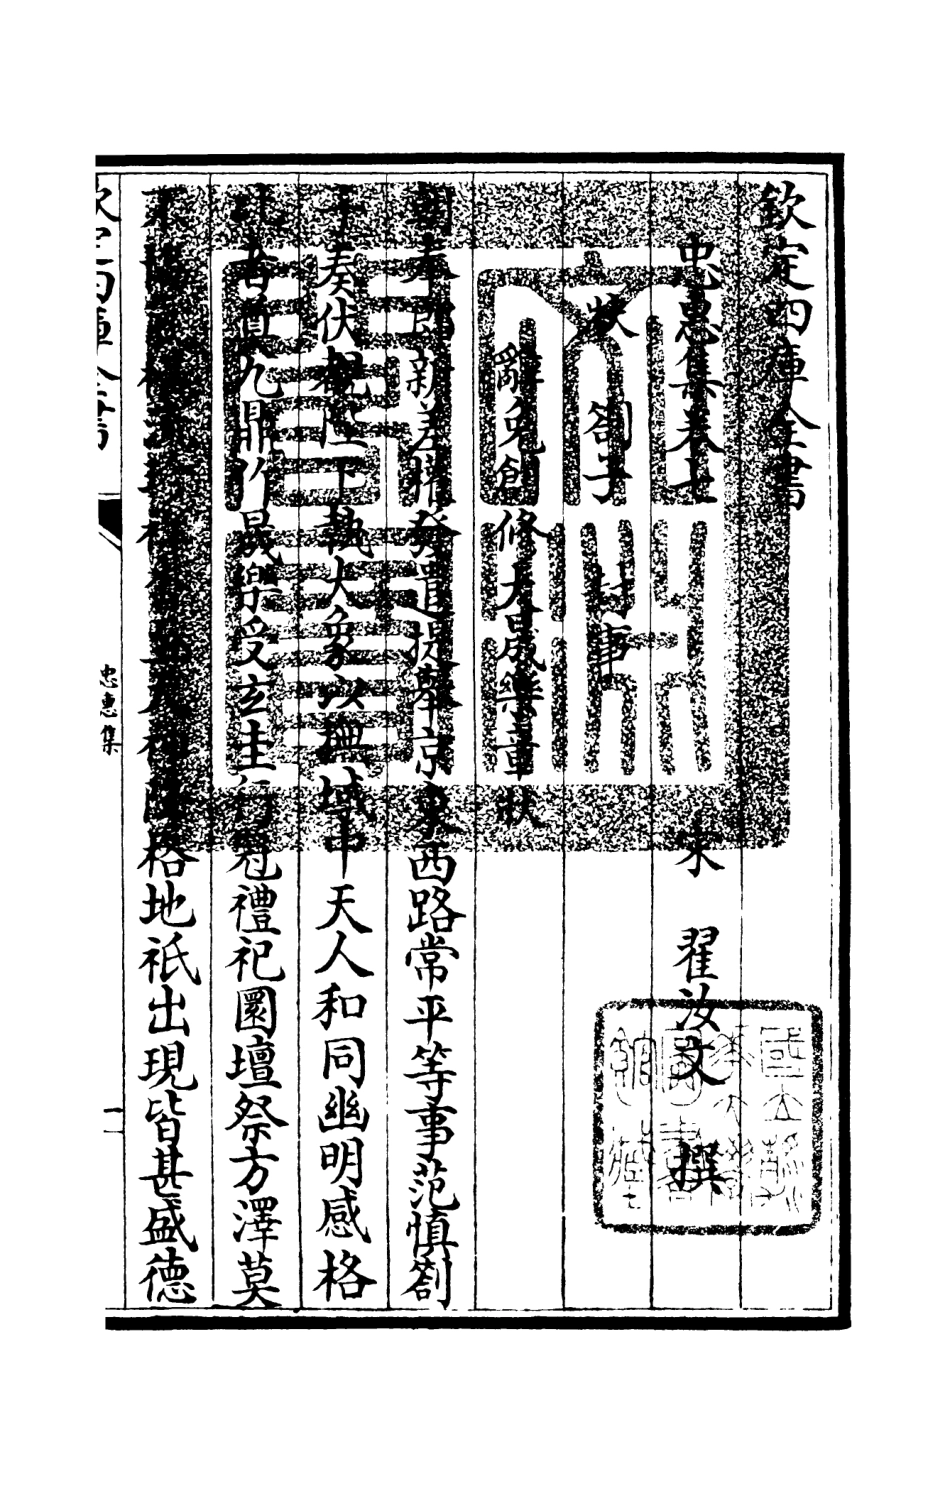 欽定四庫全書
忠惠集卷七 宋 翟汝文 撰
狀 劄子 封事
辭免創修大晟樂章狀
朝奉郎新差權發遣提舉京東西路常平等事范慎劄
子奏伏覩陛下執大象以 域中天人和同幽明感格
者奠九鼎作晟樂受玄圭行冠禮祀圜壇祭方澤莫
降格地祇出現皆甚盛德
欽定四庫全書
忠惠集
一